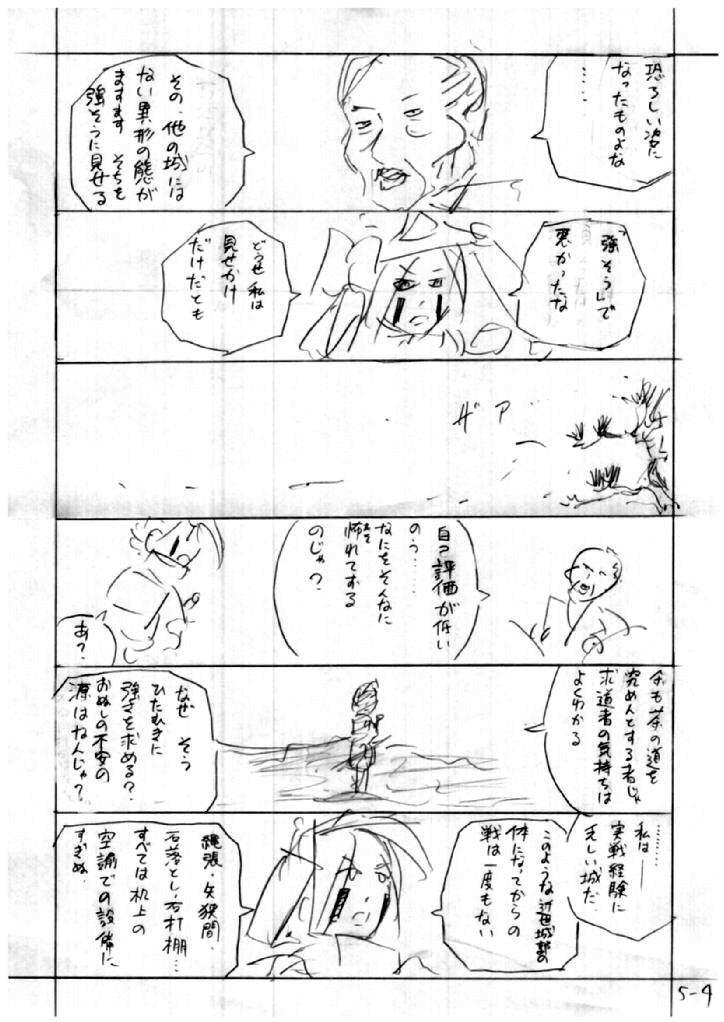 恐ろしい姿に
なったものよな
……
その、他の城には
ない異形の態が
ますます そちを
強そうに見せる
「強そう」で
悪かったな
どうせ 私は
見せかけ
だけだとも
ザア
自己評価が低い
のう……
なにをそんなに
怖れておる
のじゃ？
あ？
余も茶の道を
究めんとする者じゃ
求道者の気持ちは
よくわかる
なぜ そう
ひたむきに
強さを求める？
おぬしの不安の
源はなんじゃ？
………
私は──
実戦経験に
乏しい城だ
このような近世城郭の
体になってからの
戦は一度もない
縄張・矢狭間・
石落とし・石打棚…
すべては机上の
空論での設備に
すぎぬ
5-4